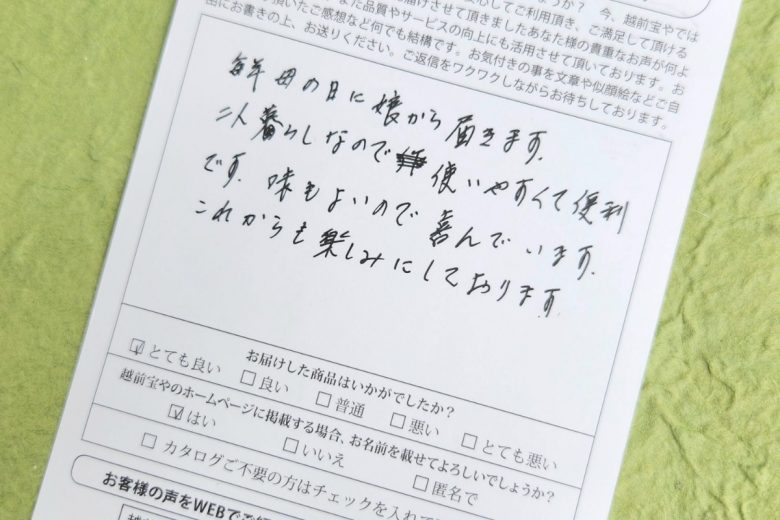 しょうか？ 今、越前宝やでは
安心してご利用頂き、ご満足して頂ける
お届けさせて頂きましたあなた様の貴重なお声が何よ
頂いたご感想など何でも結構です。お気付きの事を文章や似顔絵などご自
由にお書きの上、お送りください。ご返信をワクワクしながらお待ちしております。
毎年母の日に娘から届きます。
二人暮らしなので使いやすくて便利
です。味もよいので喜んでいます。
これからも楽しみにしております。
お届けした商品はいかがでしたか？
☑とても良い □良い □普通 □悪い □とても悪い
越前宝やのホームページに掲載する場合、お名前を載せてよろしいでしょうか？
☑はい □いいえ □匿名で
□カタログご不要の方はチェックを入れて
お客様の声をWEBでご紹